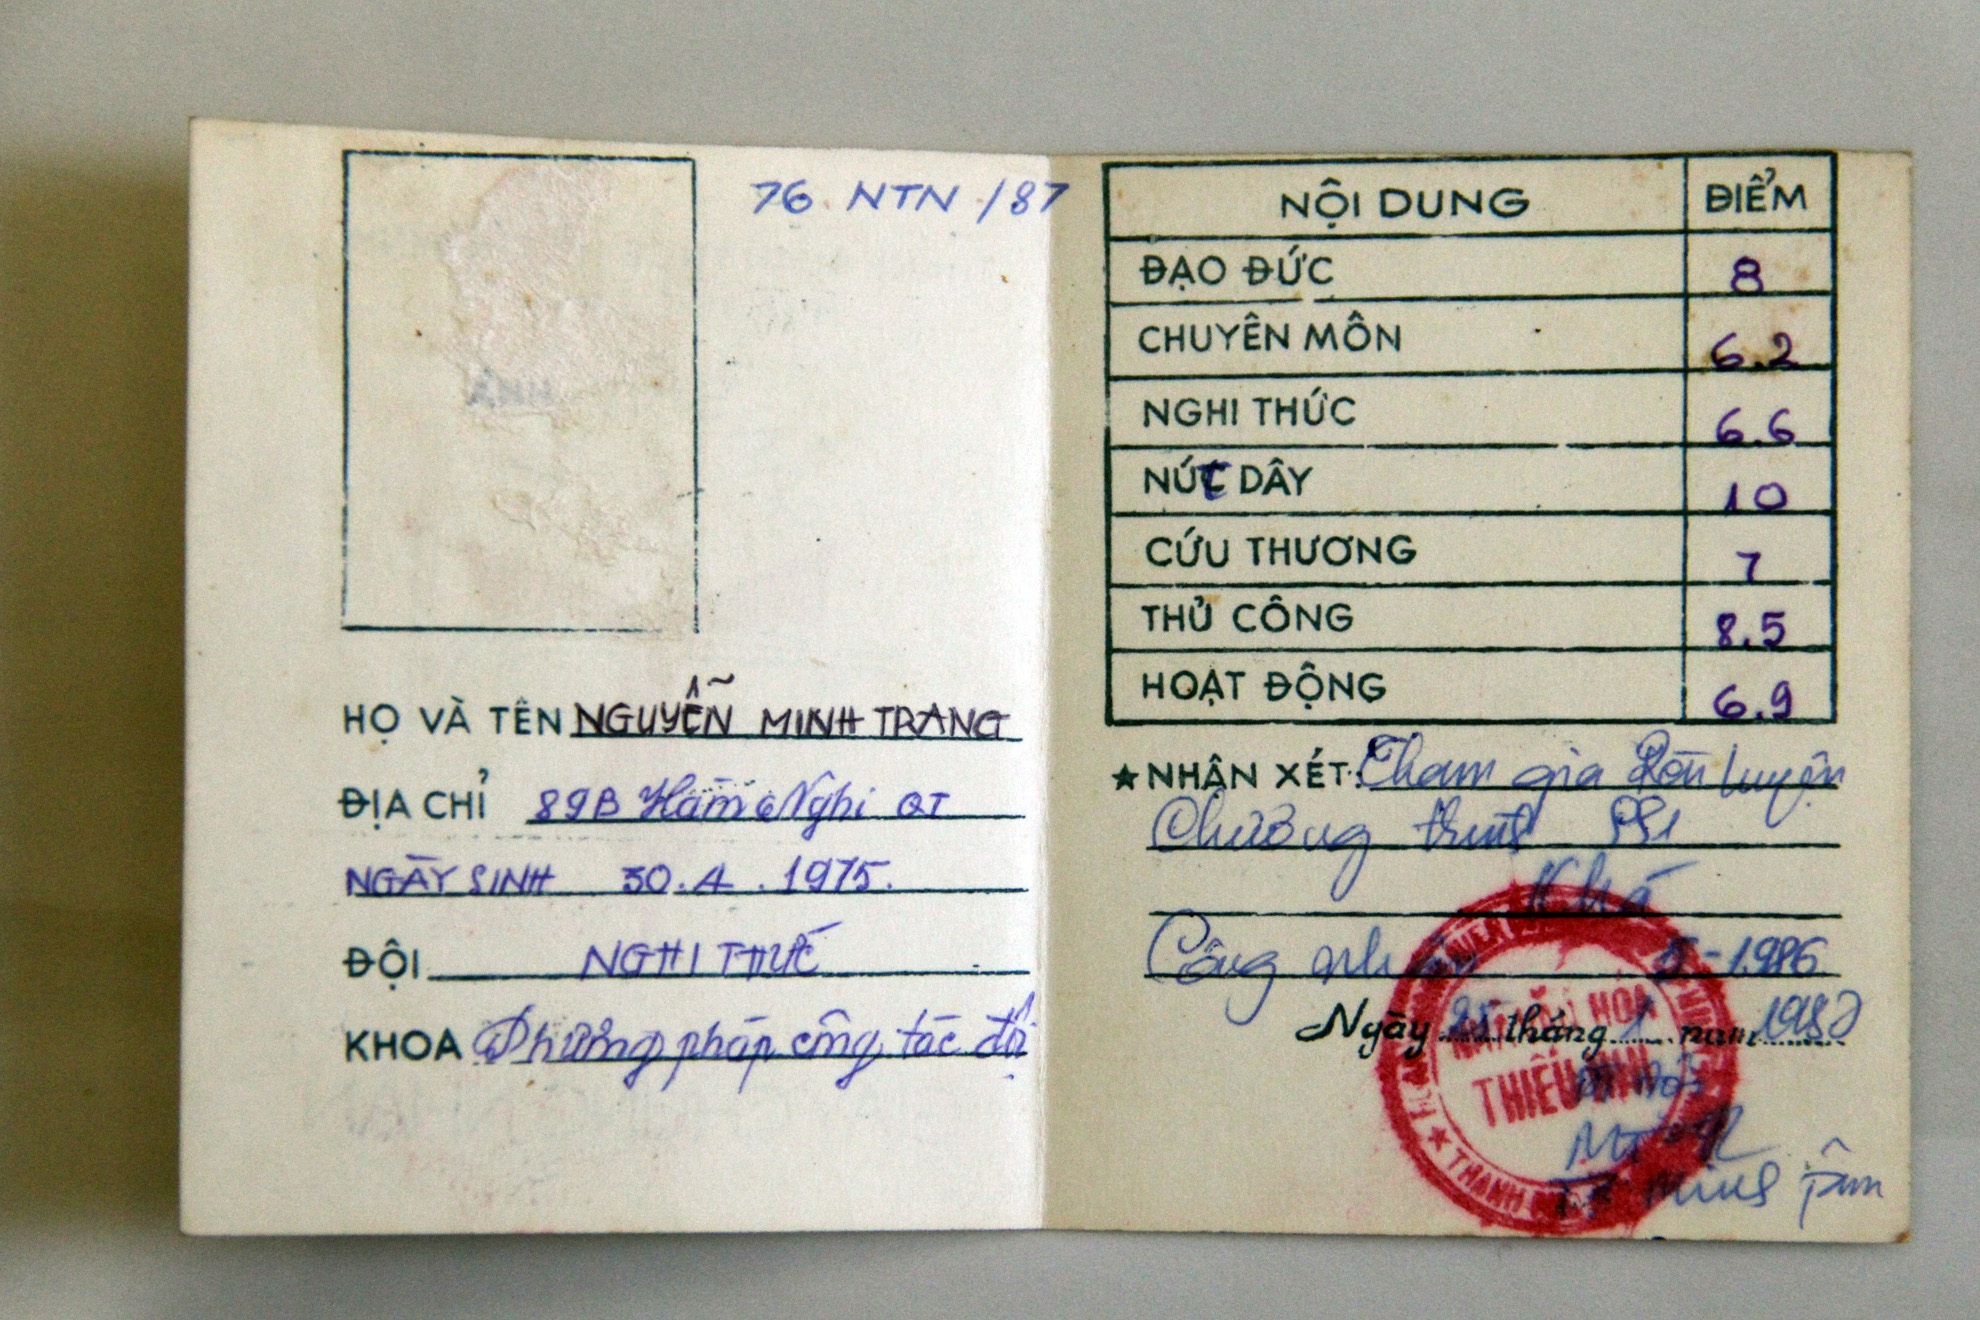 76 NTN /87
ẢNH
HỌ VÀ TÊN NGUYỄN MINH TRANG
ĐỊA CHỈ 89B Hàm Nghi QT
NGÀY SINH 30.4.1975.
ĐỘI NGHI THỨC
KHOA Phương pháp công tác đội
NỘI DUNG ĐIỂM
ĐẠO ĐỨC 8
CHUYÊN MÔN 6.2
NGHI THỨC 6.6
NÚT DÂY 10
CỨU THƯƠNG 7
THỦ CÔNG 8.5
HOẠT ĐỘNG 6.9
★ NHẬN XÉT: Tham gia Rèn luyện
Chương trình
Khá
Công nhận 5-1986
Ngày 25 tháng 1 năm 1987
NHÀ VĂN HÓA
THIẾU NHI